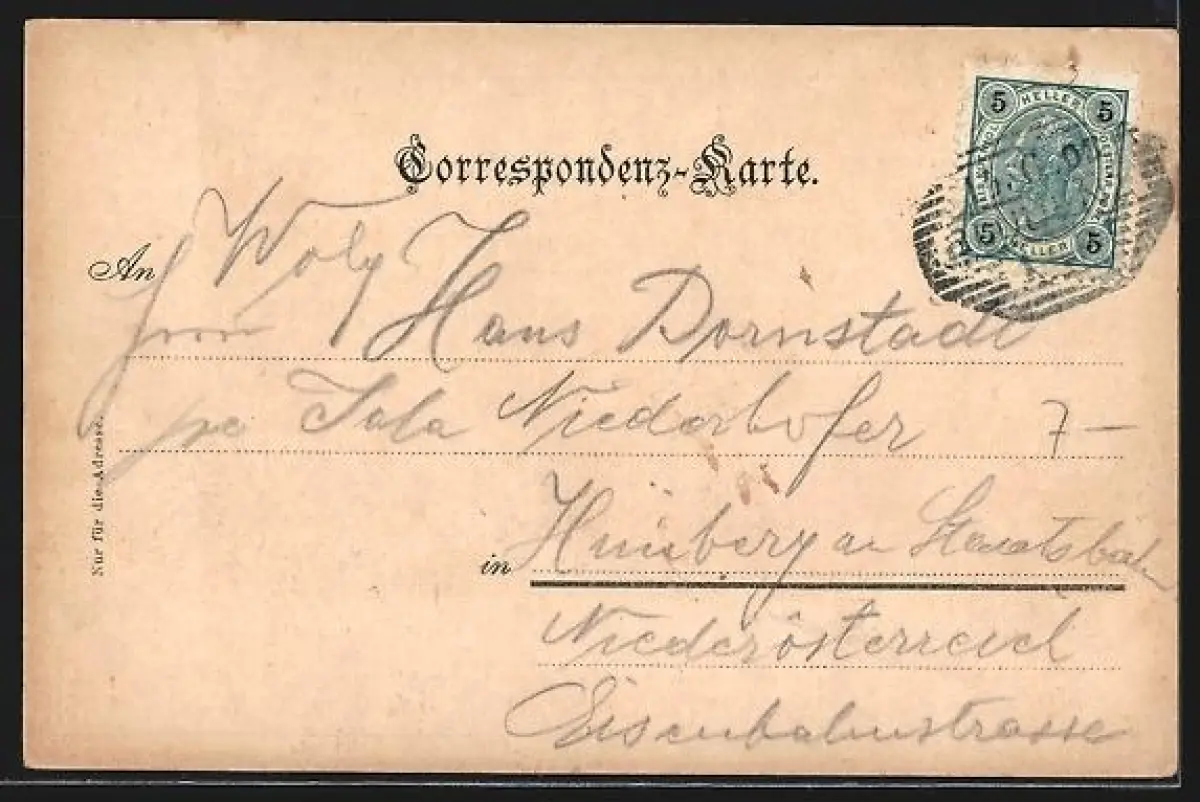 Correspondenz-Karte.
5 HELLER 5
5 HELLER 5
An
Wohg
Herrn Hans Dornstadl
pr Niederhofer 7-
in Himberg an Staatsbahn
Niederösterreich
Eisenbahnstrasse
Nur für die Adresse.